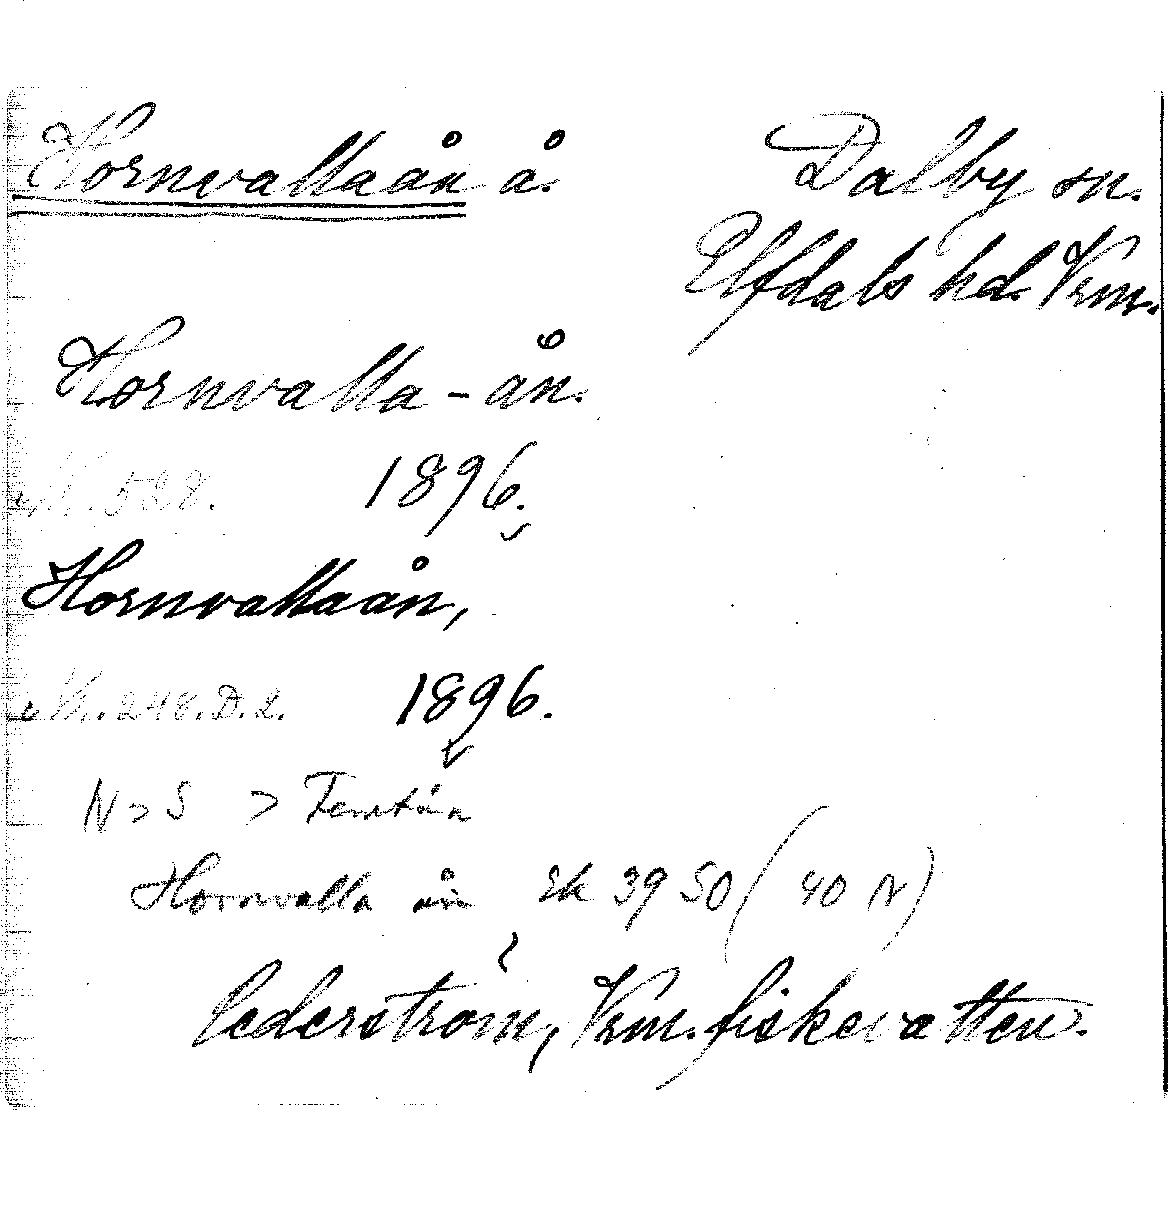 Hornvallaån å.
Dalby sn.
Elfdals hd. Vrm.
Hornvalla-ån.
528. 1896.
Hornvallaån,
248. D. 2. 1896.
N > S > Femtån
Hornvalla ån Ek 39 SO (40 N)
Cederström, Vrm. fiskevatten.